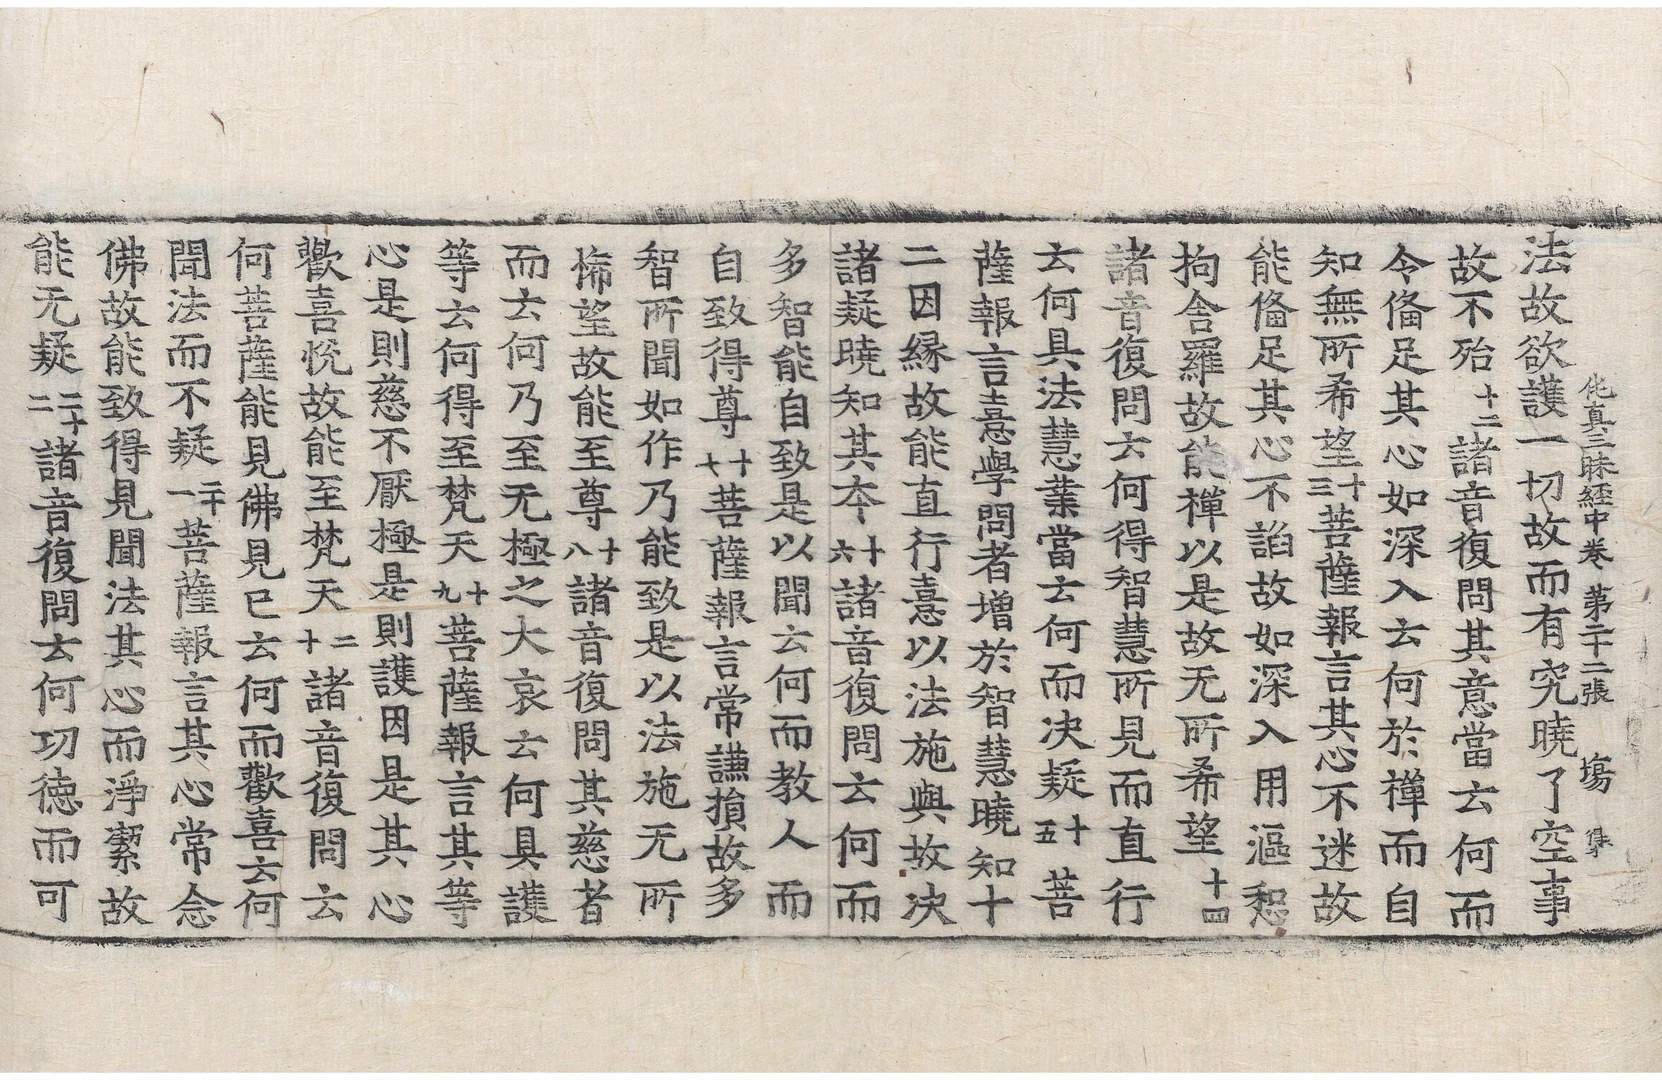 法故欲護一切故而有究曉了空事
伅真三昧經中卷 第二十二張 塲
故不殆十二諸音復問其意當云何而
令俻足其心如深入云何於禪而自
知無所希望十三菩薩報言其心不迷故
能俻足其心不諂故如深入用漚惒
拘舍羅故能禪以是故无所希望十四
諸音復問云何得智慧所見而直行
云何具法慧業當云何而决疑十五菩
薩報言憙學問者增於智慧曉知十
二因縁故能直行憙以法施與故决
諸疑曉知其夲十六諸音復問云何而
多智能自致是以聞云何而教人而
自致得尊十七菩薩報言常謙損故多
智所聞如作乃能致是以法施无所
悕望故能至尊十八諸音復問其慈者
而云何乃至无極之大哀云何具護
等云何得至梵天十九菩薩報言其等
心是則慈不厭極是則護因是其心
歡喜悅故能至梵天二十諸音復問云
何菩薩能見佛見已云何而歡喜云何
聞法而不疑二十一菩薩報言其心常念
佛故能致得見聞法其心而淨潔故
能无疑二十二諸音復問云何功德而可